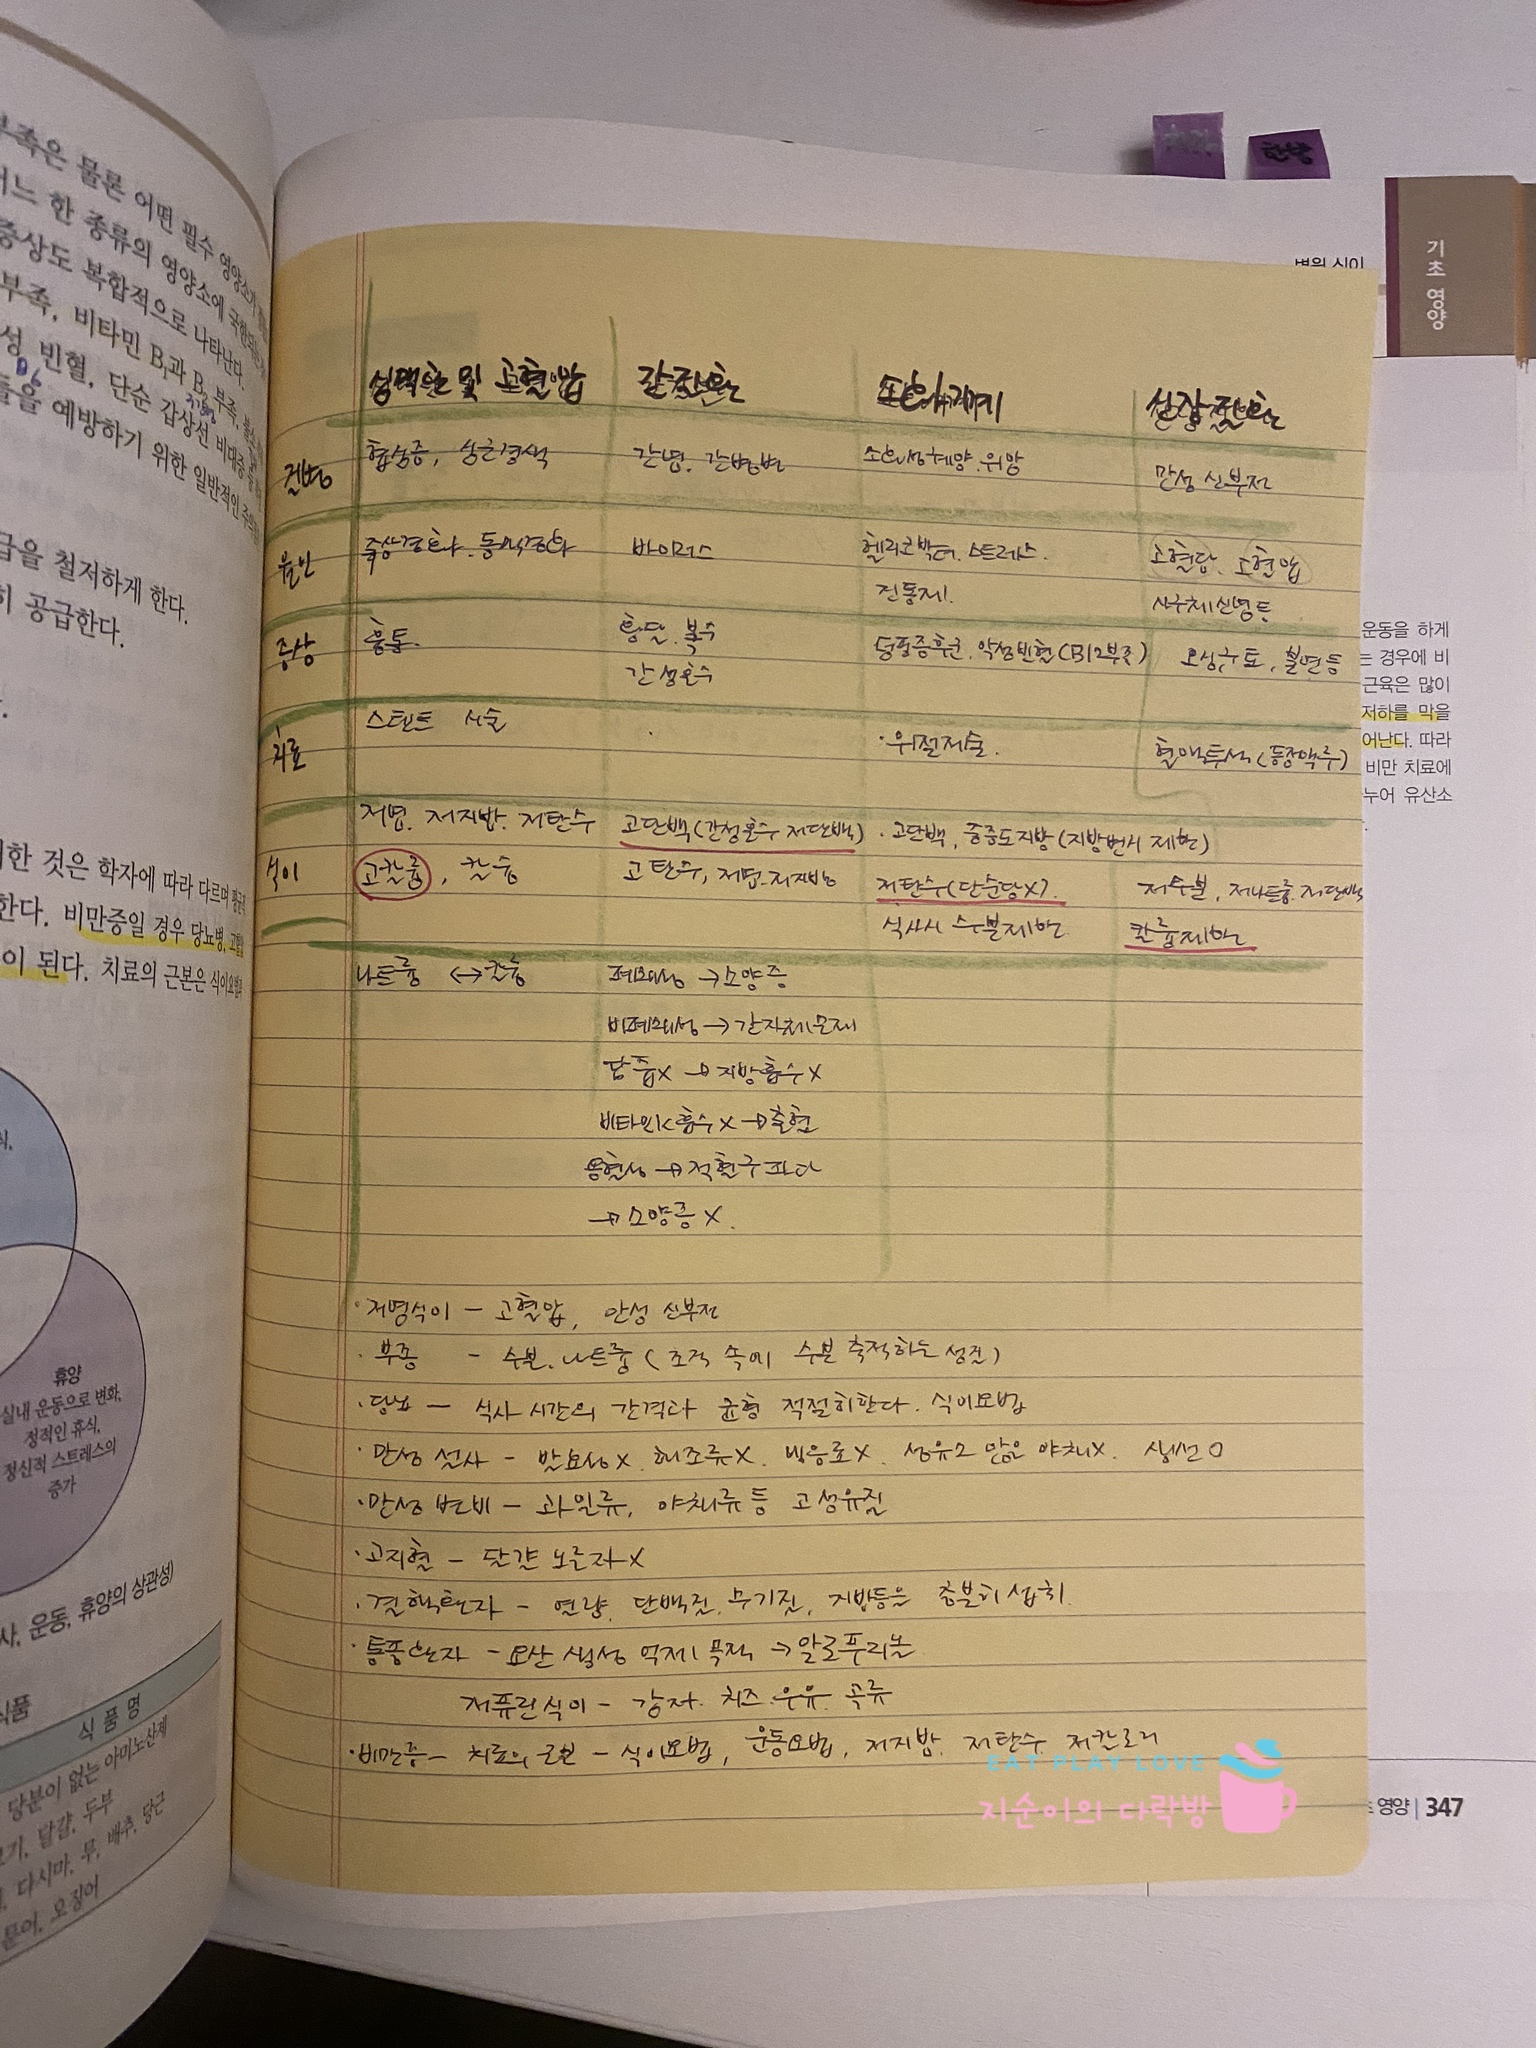 부족은 물론 어떤 필수 영양소가
어느 한 종류의 영양소에 국한되는
증상도 복합적으로 나타난다.
부족, 비타민 B₁과 B₂ 부족,
성 빈혈, 단순 갑상선 비대증
B6
들을 예방하기 위한 일반적인 주의
급을 철저하게 한다.
히 공급한다.
의한 것은 학자에 따라 다르며
한다. 비만증일 경우 당뇨병, 고혈압
이 된다. 치료의 근본은 식이요법과
휴양
실내 운동으로 변화,
정적인 휴식,
정신적 스트레스의
증가
사, 운동, 휴양의 상관성)
식품
식 품 명
당분이 없는 아미노산제
고기, 달걀, 두부
다시마, 무, 배추, 당근
문어, 오징어
한방
기초 영양
병원 식이
심맥관 및 고혈압 간질환 소화기계 신장질환
질병 협심증, 심근경색 간염. 간경변 소화성궤양. 위암 만성 신부전
원인 죽상경화. 동맥경화 바이러스 헬리코박터. 스트레스. 고혈당. 고혈압
진통제. 사구체신염 등
증상 흉통. 황달. 복수 덤핑증후군. 악성빈혈(B12부족) 오심, 구토, 불면 등
간성혼수
치료 스텐트 시술 · 위절제술. 혈액투석(동정맥루)
식이 저염. 저지방. 저탄수 고단백(간성혼수 저단백) · 고단백, 중중도지방(지방변시 제한)
고칼륨, 칼슘 고탄수, 저염. 저지방 저탄수(단순당X). 저수분, 저나트륨. 저단백
식사시 수분제한 칼륨제한
나트륨 ↔ 칼륨 폐쇄성 → 소양증
비폐쇄성 → 간자체문제
담즙X → 지방흡수X
비타민K흡수X → 출혈
용혈성 → 적혈구파괴
→ 소양증X.
· 저염식이 - 고혈압, 만성 신부전
· 부종 - 수분. 나트륨 (조직 속에 수분 축적하는 성질)
· 당뇨 - 식사 시간의 간격과 균형 적절히한다. 식이요법
· 만성 설사 - 발효성X. 해조류X. 생선O
· 만성 변비 - 과일류, 야채류 등 고섬유질
· 고지혈 - 달걀 노른자X
· 결핵환자 - 열량. 단백질. 무기질, 지방등을 충분히 섭취.
· 통풍환자 - 요산 생성 억제 목적 → 알로푸리놀
저퓨린식이 - 감자. 치즈. 우유. 곡류
· 비만증 - 치료의 근본 - 식이요법, 운동요법, 저지방. 저탄수. 저칼로리
운동을 하게
는 경우에 비
근육은 많이
저하를 막을
어난다. 따라
비만 치료에
누어 유산소
EAT PLAY LOVE
지순이의 다락방
초 영양 | 347